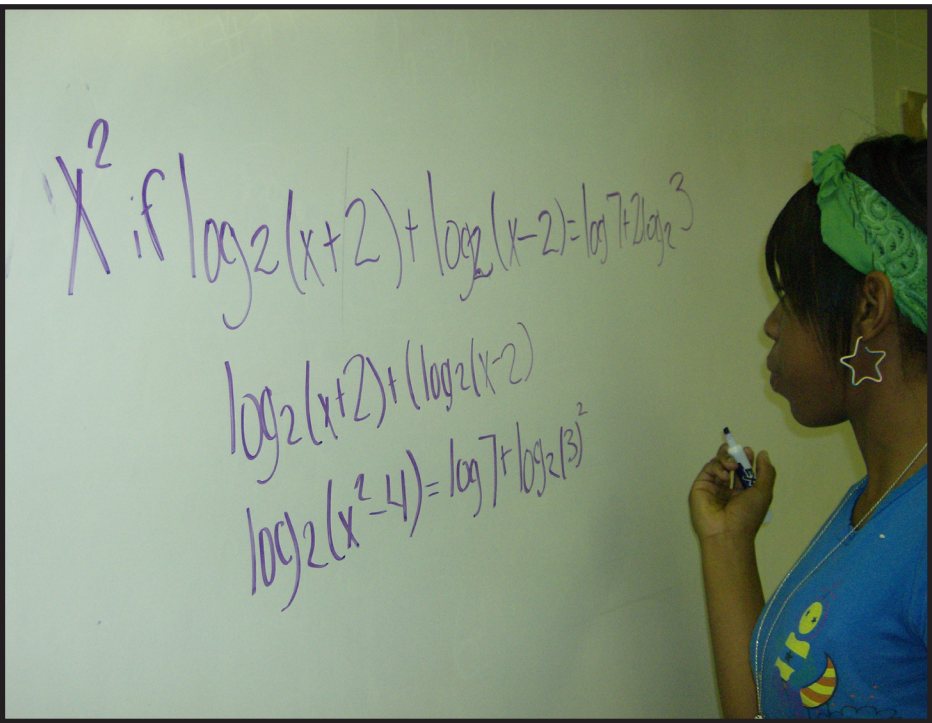 X² if log₂(x+2)+log₂(x-2)=log7+2log₂3
log₂(x+2)+(log₂(x-2)
log₂(x²-4)=log7+log₂(3)²